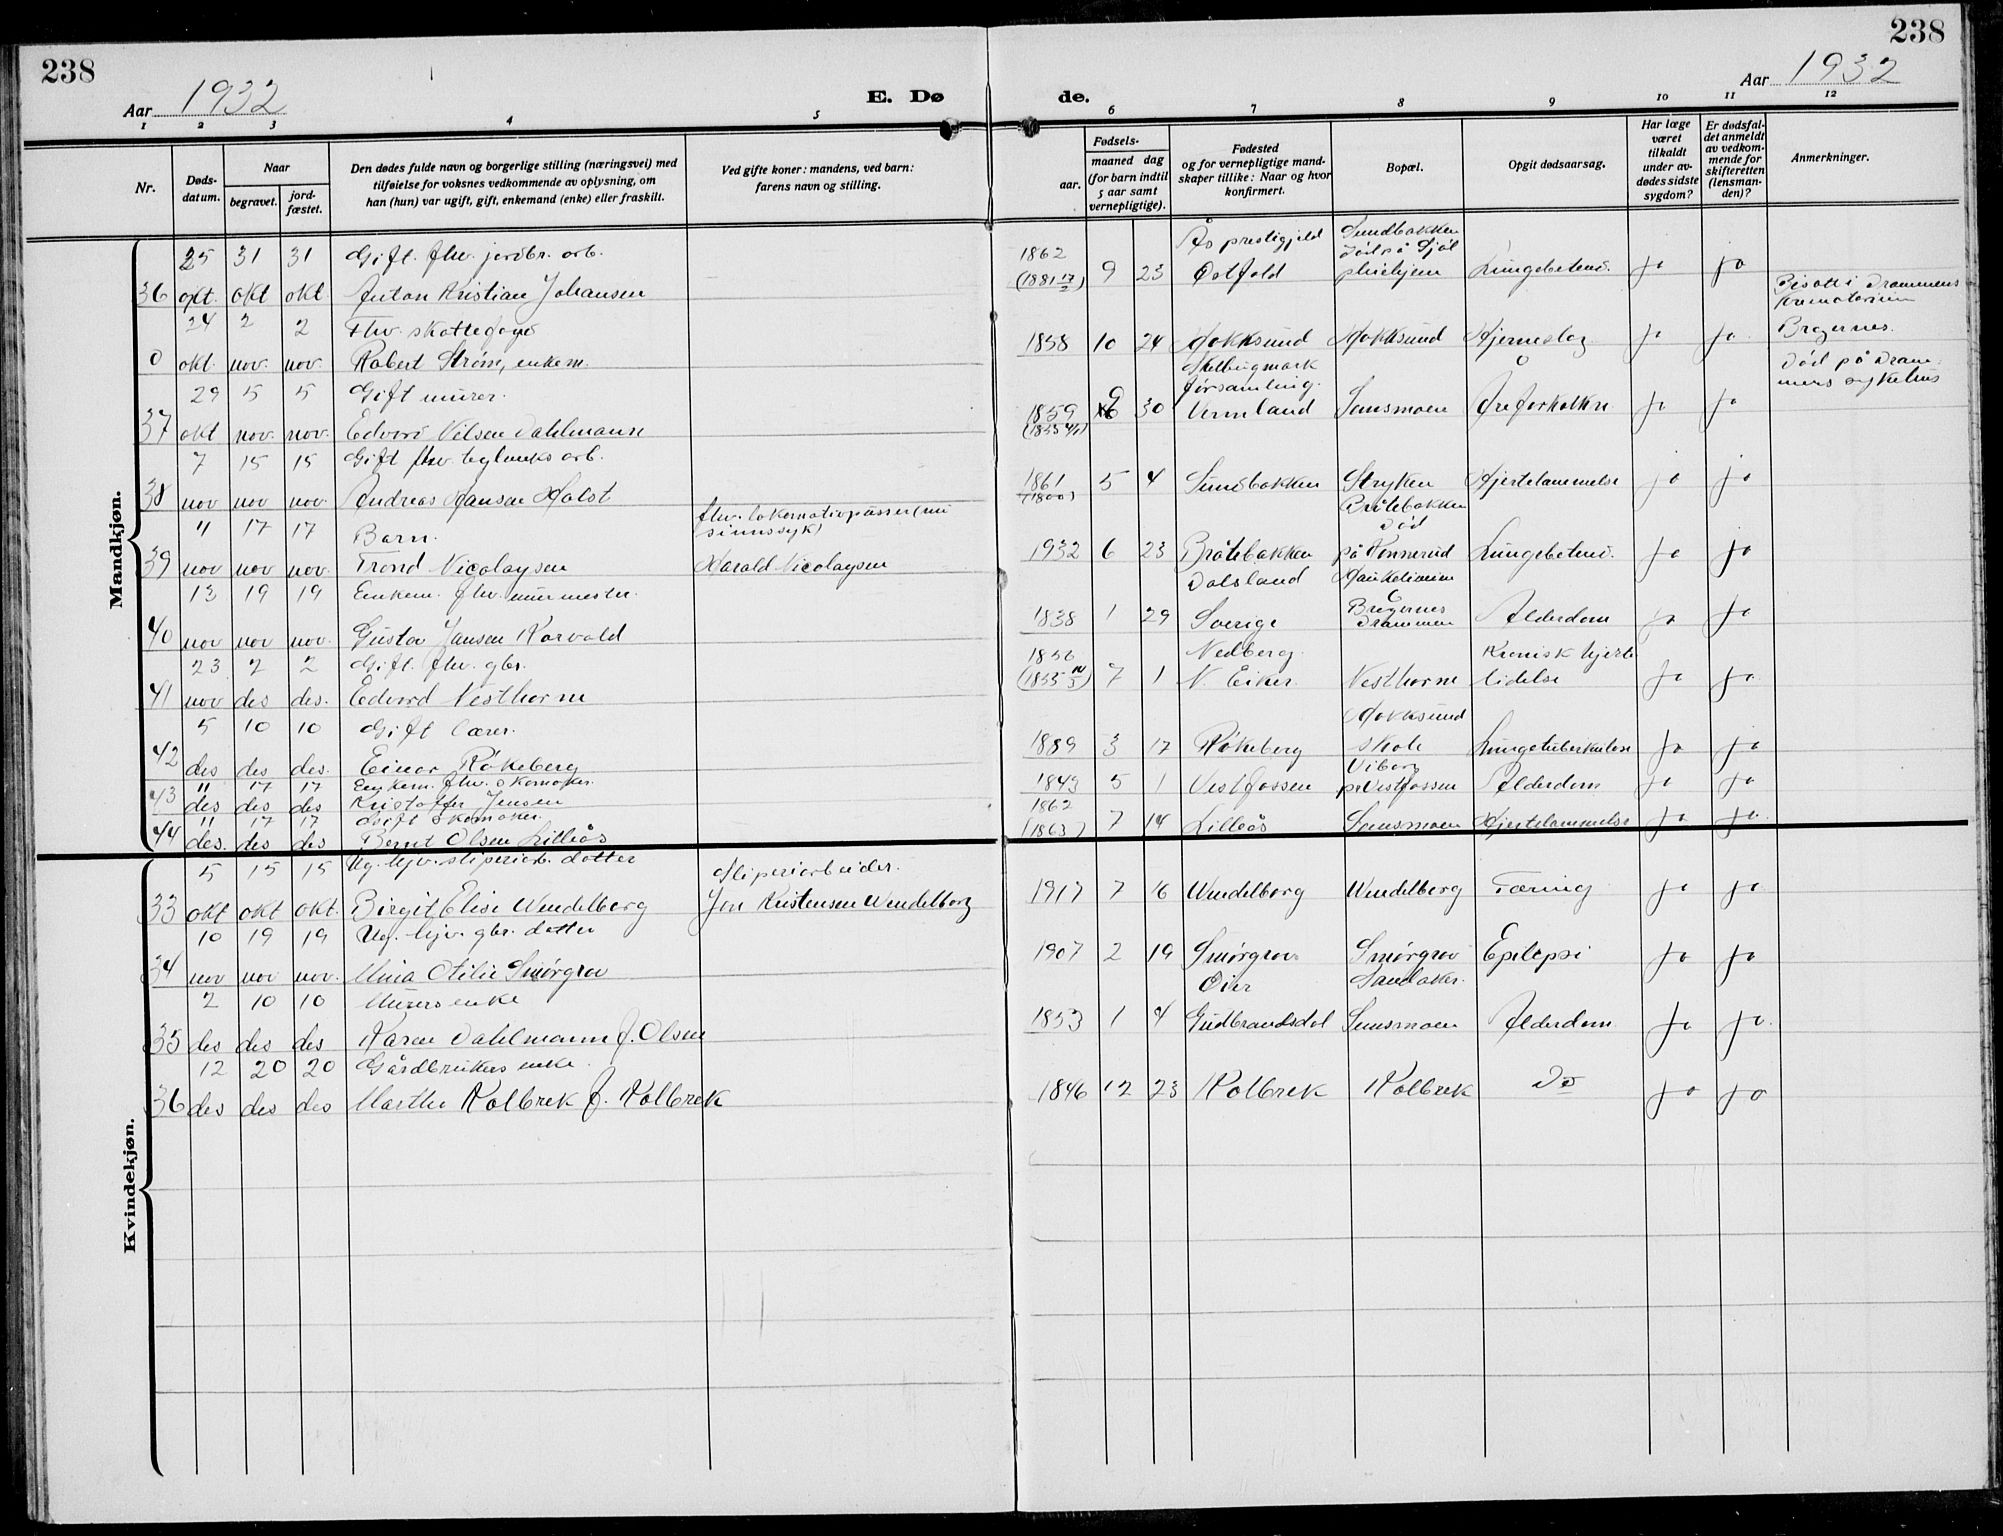 238
238
Aar 1932
E. Dø
de.
Aar 1932
1 2 3 4 5 6 7 8 9 10 11 12
Nr.
Døds-
datum.
Naar
begravet.
jord-
fæstet.
Den dødes fulde navn og borgerlige stilling (næringsvei) med
tilføielse for voksnes vedkommende av oplysning, om
han (hun) var ugift, gift, enkemand (enke) eller fraskilt.
Ved gifte koner: mandens, ved barn:
farens navn og stilling.
Fødsels-
aar.
maaned dag
(for barn indtil
5 aar samt
vernepligtige).
Fødested
og for vernepligtige mand-
skaper tillike: Naar og hvor
konfirmert.
Bopæl.
Opgit dødsaarsag.
Har læge
været
tilkaldt
under av-
dødes sidste
sygdom?
Er dødsfal-
det anmeldt
av vedkom-
mende for
skifteretten
(lensman-
den)?
Anmerkninger.
Mandkjøn.
25 31 31 Gift. fhv. jordbr. arb. 1862 Ås prestigjeld Sundbakken
Død på
36 okt. okt okt. Anton Kristian Johansen 9 23 Østfold Lungebeten. ja ja Bisatt i Drammens
krematorium
24 2 2 Fhv. skattefogd
0 okt. nov. nov. Robert Strøm, enkem. 1858 10 24 Hokksund Hokksund Hjerneslag ja ja Bragernes.
29 5 5 Gift murer. Skillingmark
forsamling. Død på Dram-
mens sykehus
37 okt nov. nov. Edvard Nilsen Dahlmann 1859 9 30 Vermland Semsmoen Åreforkalkn. ja ja
7 15 15 Gift fhv. teglverks arb.
38 nov nov nov. Andreas Hansen Holst 1861 5 4 Sundbakken Stryken Hjertelammelse ja ja
11 17 17 Barn. fhv. lokomotivpusser (nu
sinnssyk) Bråtebakken
Død
39 nov nov nov. Trond Nicolaysen Harald Nicolaysen 1932 6 23 Bråtebakken på Konnerud Lungebeten. ja ja
13 19 19 Enkem. fhv. murmester. Dalsland
40 nov nov nov. Gustav Jansen Korvald 1838 1 29 Sverige Bragernes
Drammen Alderdom ja ja
23 2 2 Gift. fhv. gbr. Nedberg. Kronisk hjerte
41 nov des des. Edvard Vesthorne 7 1 N. Eiker. Vesthorne lidelse ja ja
5 10 10 Gift lærer. Hokksund
42 des des des. Einar Røkeberg 1889 3 17 Røkeberg skole Lungetuberkulose ja ja
11 17 17 Enkem. fhv. skomaker. Viborg
43 des des des Kristoffer Jensen 1843 5 1 Vestfossen pr Vestfossen Alderdom ja ja
11 17 17 Gift skomaker. 1862
44 des. des des Bernt Olsen Lilleås (1863) 7 14 Lilleås Semsmoen Hjertelammelse ja ja
Kvindekjøn.
5 15 15 Ug. hjv. sliperiarb. datter Sliperiarbeider.
33 okt okt okt. Birgit Elise Wendelborg Jon Kristensen Wendelborg 1917 7 16 Wendelborg Wendelborg Tæring ja ja
10 19 19 Ug. hjv. gbr. datter
34 nov nov nov. Mina Otilie Smørgrav 1907 2 19 Smørgrav Smørgrav Epilepsi ja ja
2 10 10 Murers enke Øier Sandaker.
35 des des des Karen Dahlmann f. Olsen 1853 1 4 Gudbrandsdal Semsmoen Alderdom ja ja
12 20 20 Gårdbrukers enke
36 des des des Marthe Kolbrek f. Kolbrek 1846 12 23 Kolbrek Kolbrek Do ja ja